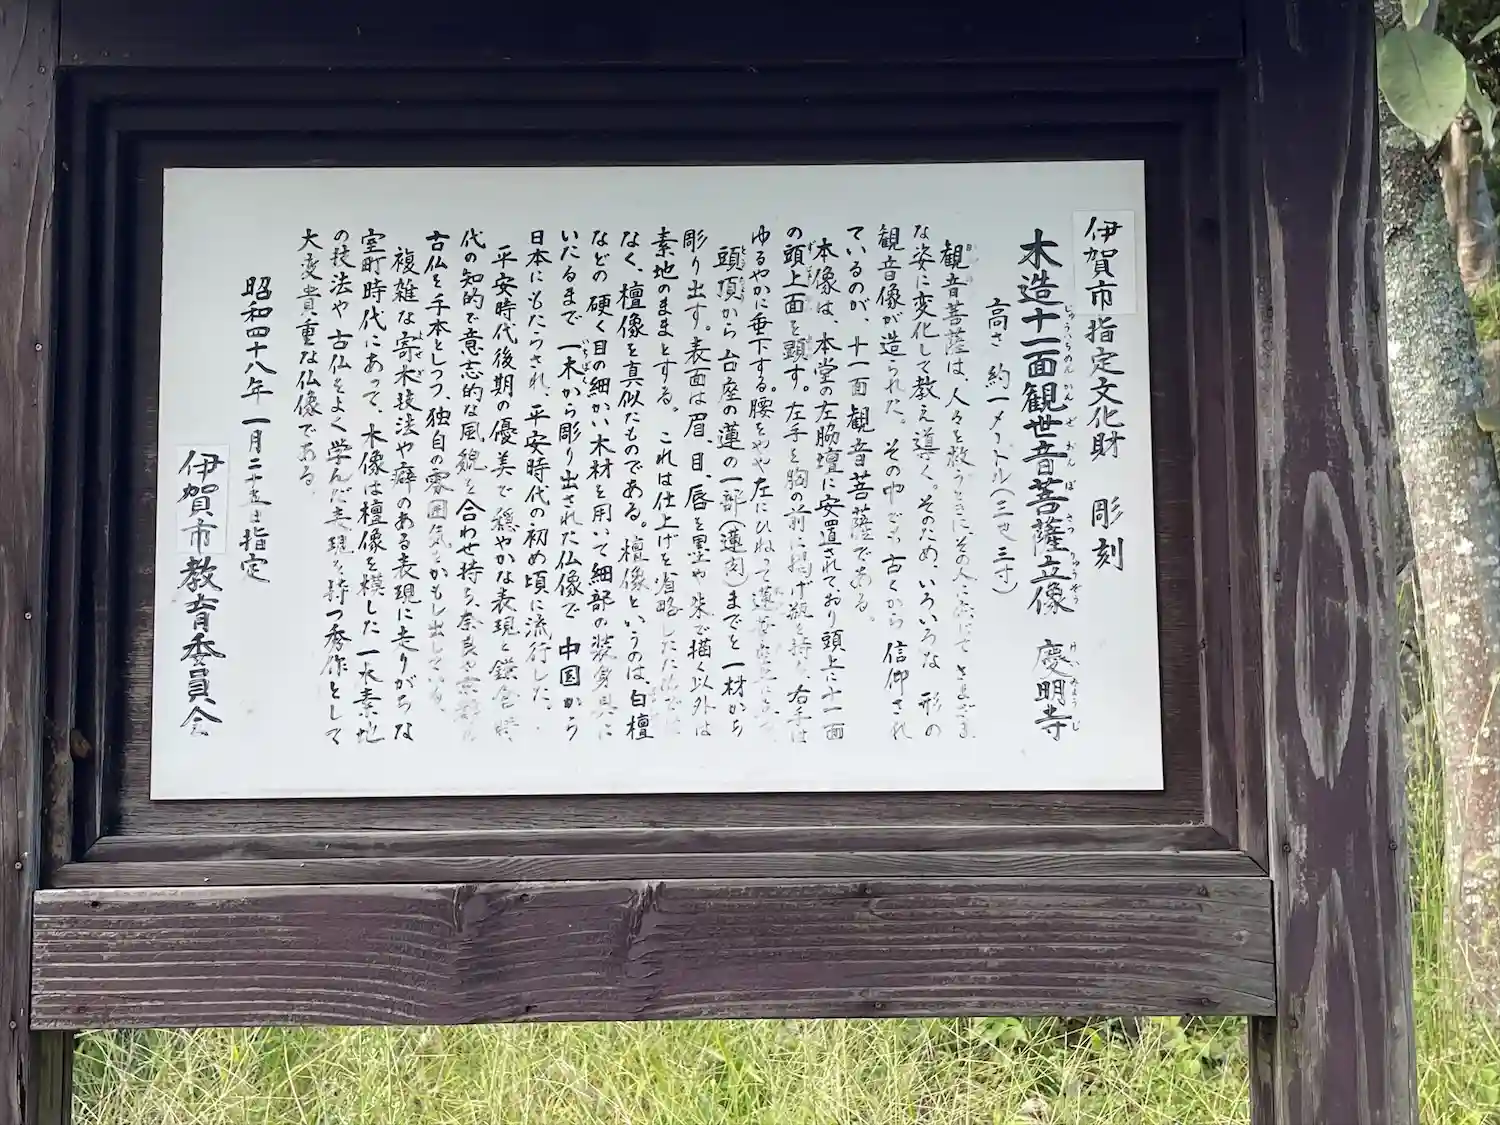 伊賀市指定文化財　彫刻
木造十一面観世音菩薩立像　慶明寺
じゅういちめんかんぜおんぼさつりゅうぞう　けいみょうじ
高さ　約一メートル（三尺三寸）
観音菩薩は、人々を救うときにその人に応じてさまざま
な姿に変化して教え導く。そのため、いろいろな　形の
観音像が造られた。その中でも古くから　信仰され
ているのが、十一面観音菩薩である。
本像は、本堂の左脇壇に安置されており頭上に十一面
の頭上面を顕す。左手を胸の前に掲げ瓶を持ち、右手は
ゆるやかに垂下する。腰をやや左にひねって蓮華座上に
頭頂から台座の蓮の一部（蓮肉）までを一材から
彫り出す。表面は眉、目、唇を墨や朱で描く以外は
素地のままとする。これは仕上げを省略したためでは
なく、檀像を真似たものである。檀像というのは、白檀
などの硬く目の細かい木材を用いて細部の装身具に
いたるまで一木から彫り出された仏像で　中国から
いちぼく
日本にもたらされ、平安時代の初め頃に流行した。
平安時代後期の優美で穏やかな表現と鎌倉時
代の知的で意志的な風貌を合わせ持ち、奈良や京都の
古仏を手本としつつ、独自の雰囲気をかもし出している。
複雑な寄木技法や癖のある表現に走りがちな
室町時代にあって、木像は檀像を模した一木素地
の技法や古仏をよく学んだ表現を持つ秀作として
大変貴重な仏像である。
昭和四十八年　一月二十五日指定
伊賀市教育委員会